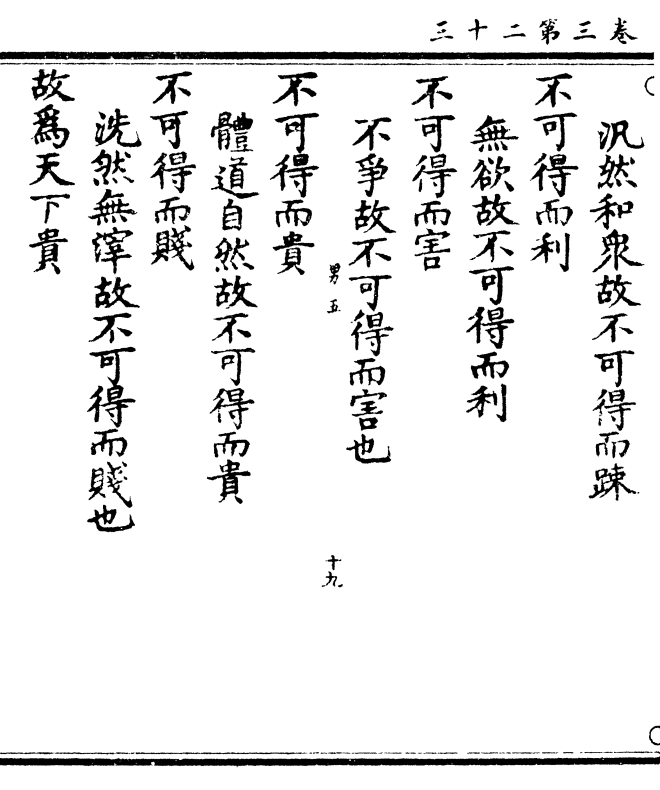 卷三第二十三
汎然和衆故不可得而踈
不可得而利
無欲故不可得而利
不可得而害
不爭故不可得而害也
男五
十九
不可得而貴
體道自然故不可得而貴
不可得而賤
洗然無滓故不可得而賤也
故爲天下貴